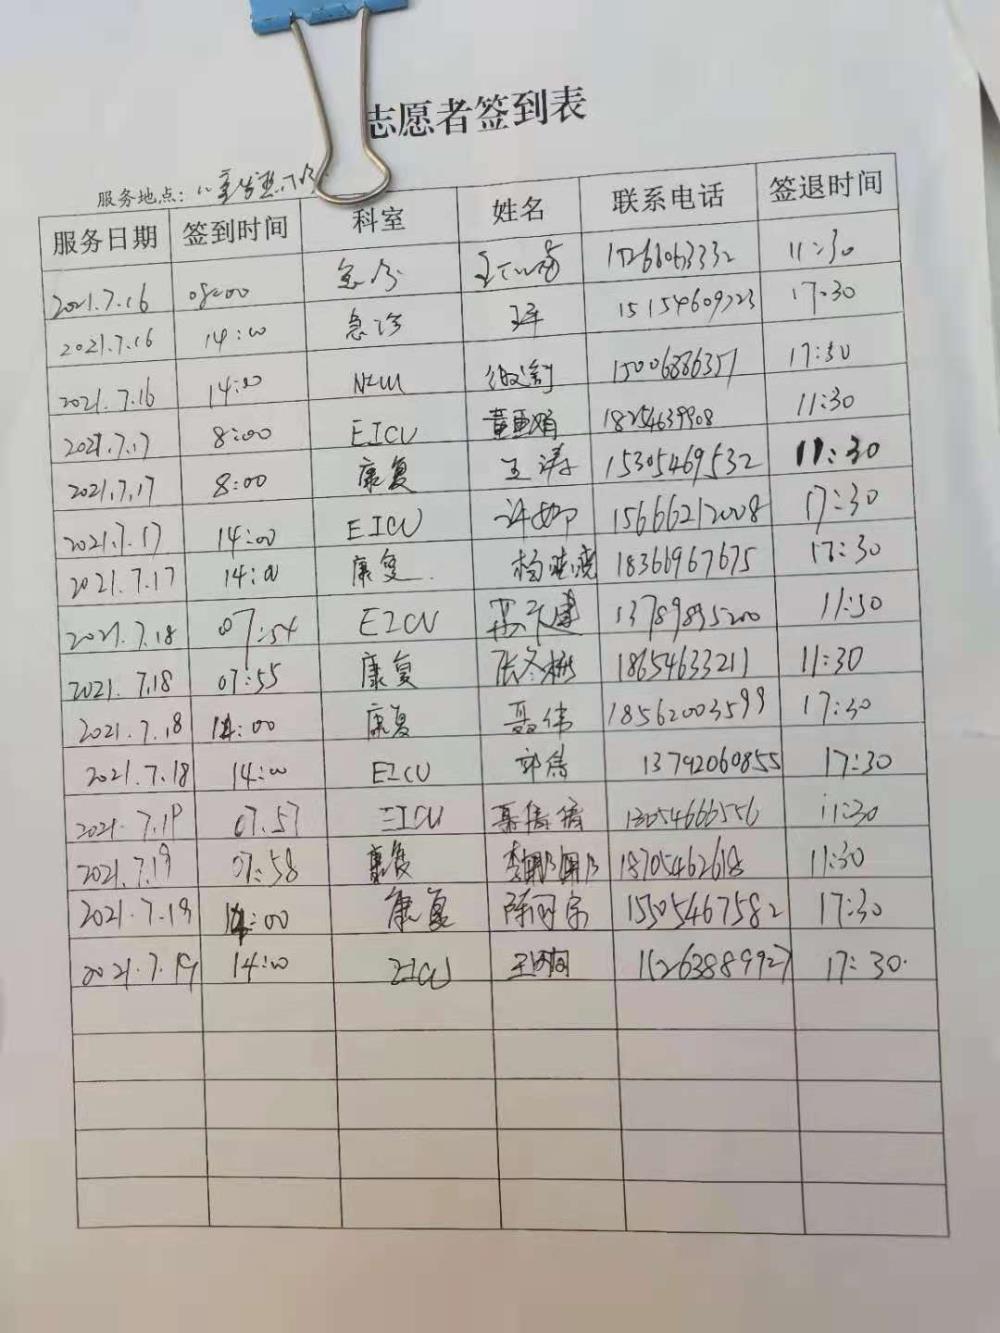 志愿者签到表
服务地点：儿童发热门诊
服务日期 签到时间 科室 姓名 联系电话 签退时间
2021.7.16 08:00 急诊 17266063332 11:30
2021.7.16 14:00 急诊 15154609323 17:30
2021.7.16 14:00 15006886351 17:30
2021.7.17 8:00 EICU 董亚娟 18254639908 11:30
2021.7.17 8:00 康复 王涛 15305469532 11:30
2021.7.17 14:00 EICU 许娜 15666212008 17:30
2021.7.17 14:00 康复 杨晓晓 18366967675 17:30
2021.7.18 07:54 EICU 13789895200 11:30
2021.7.18 07:55 康复 张冬梅 18654633211 11:30
2021.7.18 14:00 康复 聂伟 18562003599 17:30
2021.7.18 14:00 EICU 郭倩 13792060855 17:30
2021.7.19 07.57 EICU 聂倩倩 13054666556 11:30
2021.7.19 07:58 康复 李娜娜 18705462618 11:30
2021.7.19 14:00 康复 15505467582 17:30
2021.7.19 14:00 EICU 17:30.